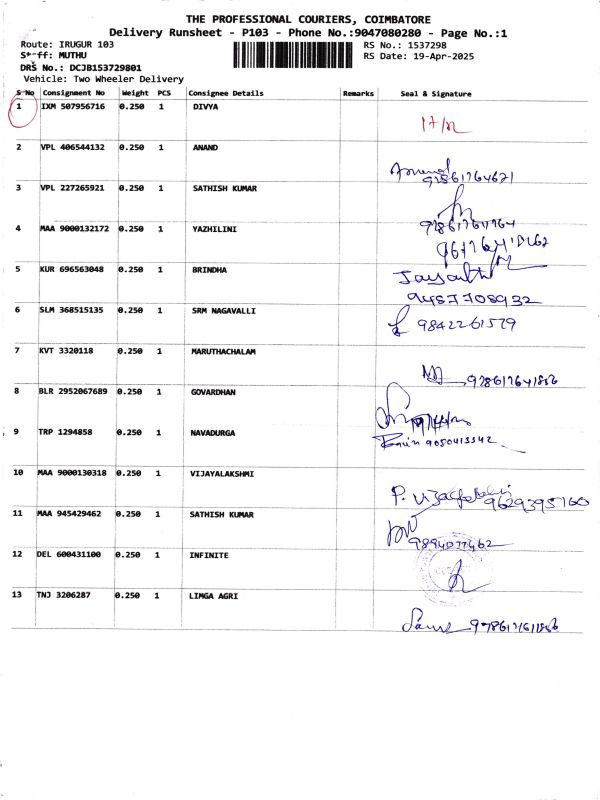 THE PROFESSIONAL COURIERS, COIMBATORE
Delivery Runsheet - P103 - Phone No.:9047080280 - Page No.:1
Route: IRUGUR 103
RS No.: 1537298
S**ff: MUTHU
RS Date: 19-Apr-2025
DRS No.: DCJB153729801
Vehicle: Two Wheeler Delivery
S No Consignment No Weight PCS Consignee Details Remarks Seal & Signature
1 IXM 507956716 0.250 1 DIVYA
2 VPL 406544132 0.250 1 ANAND
3 VPL 227265921 0.250 1 SATHISH KUMAR
4 MAA 9000132172 0.250 1 YAZHILINI
5 KUR 696563048 0.250 1 BRINDHA
9487708932
6 SLM 368515135 0.250 1 SRM NAGAVALLI
9842261579
7 KVT 3320118 0.250 1 MARUTHACHALAM
8 BLR 2952067689 0.250 1 GOVARDHAN
9 TRP 1294858 0.250 1 NAVADURGA
10 MAA 9000130318 0.250 1 VIJAYALAKSHMI
9629395760
11 MAA 945429462 0.250 1 SATHISH KUMAR
12 DEL 600431100 0.250 1 INFINITE
13 TNJ 3206287 0.250 1 LIMGA AGRI